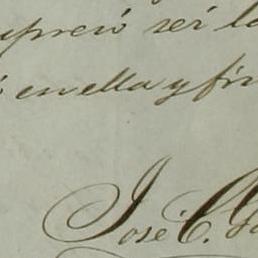 upreció ser la
en ella y fir
José C. Ga